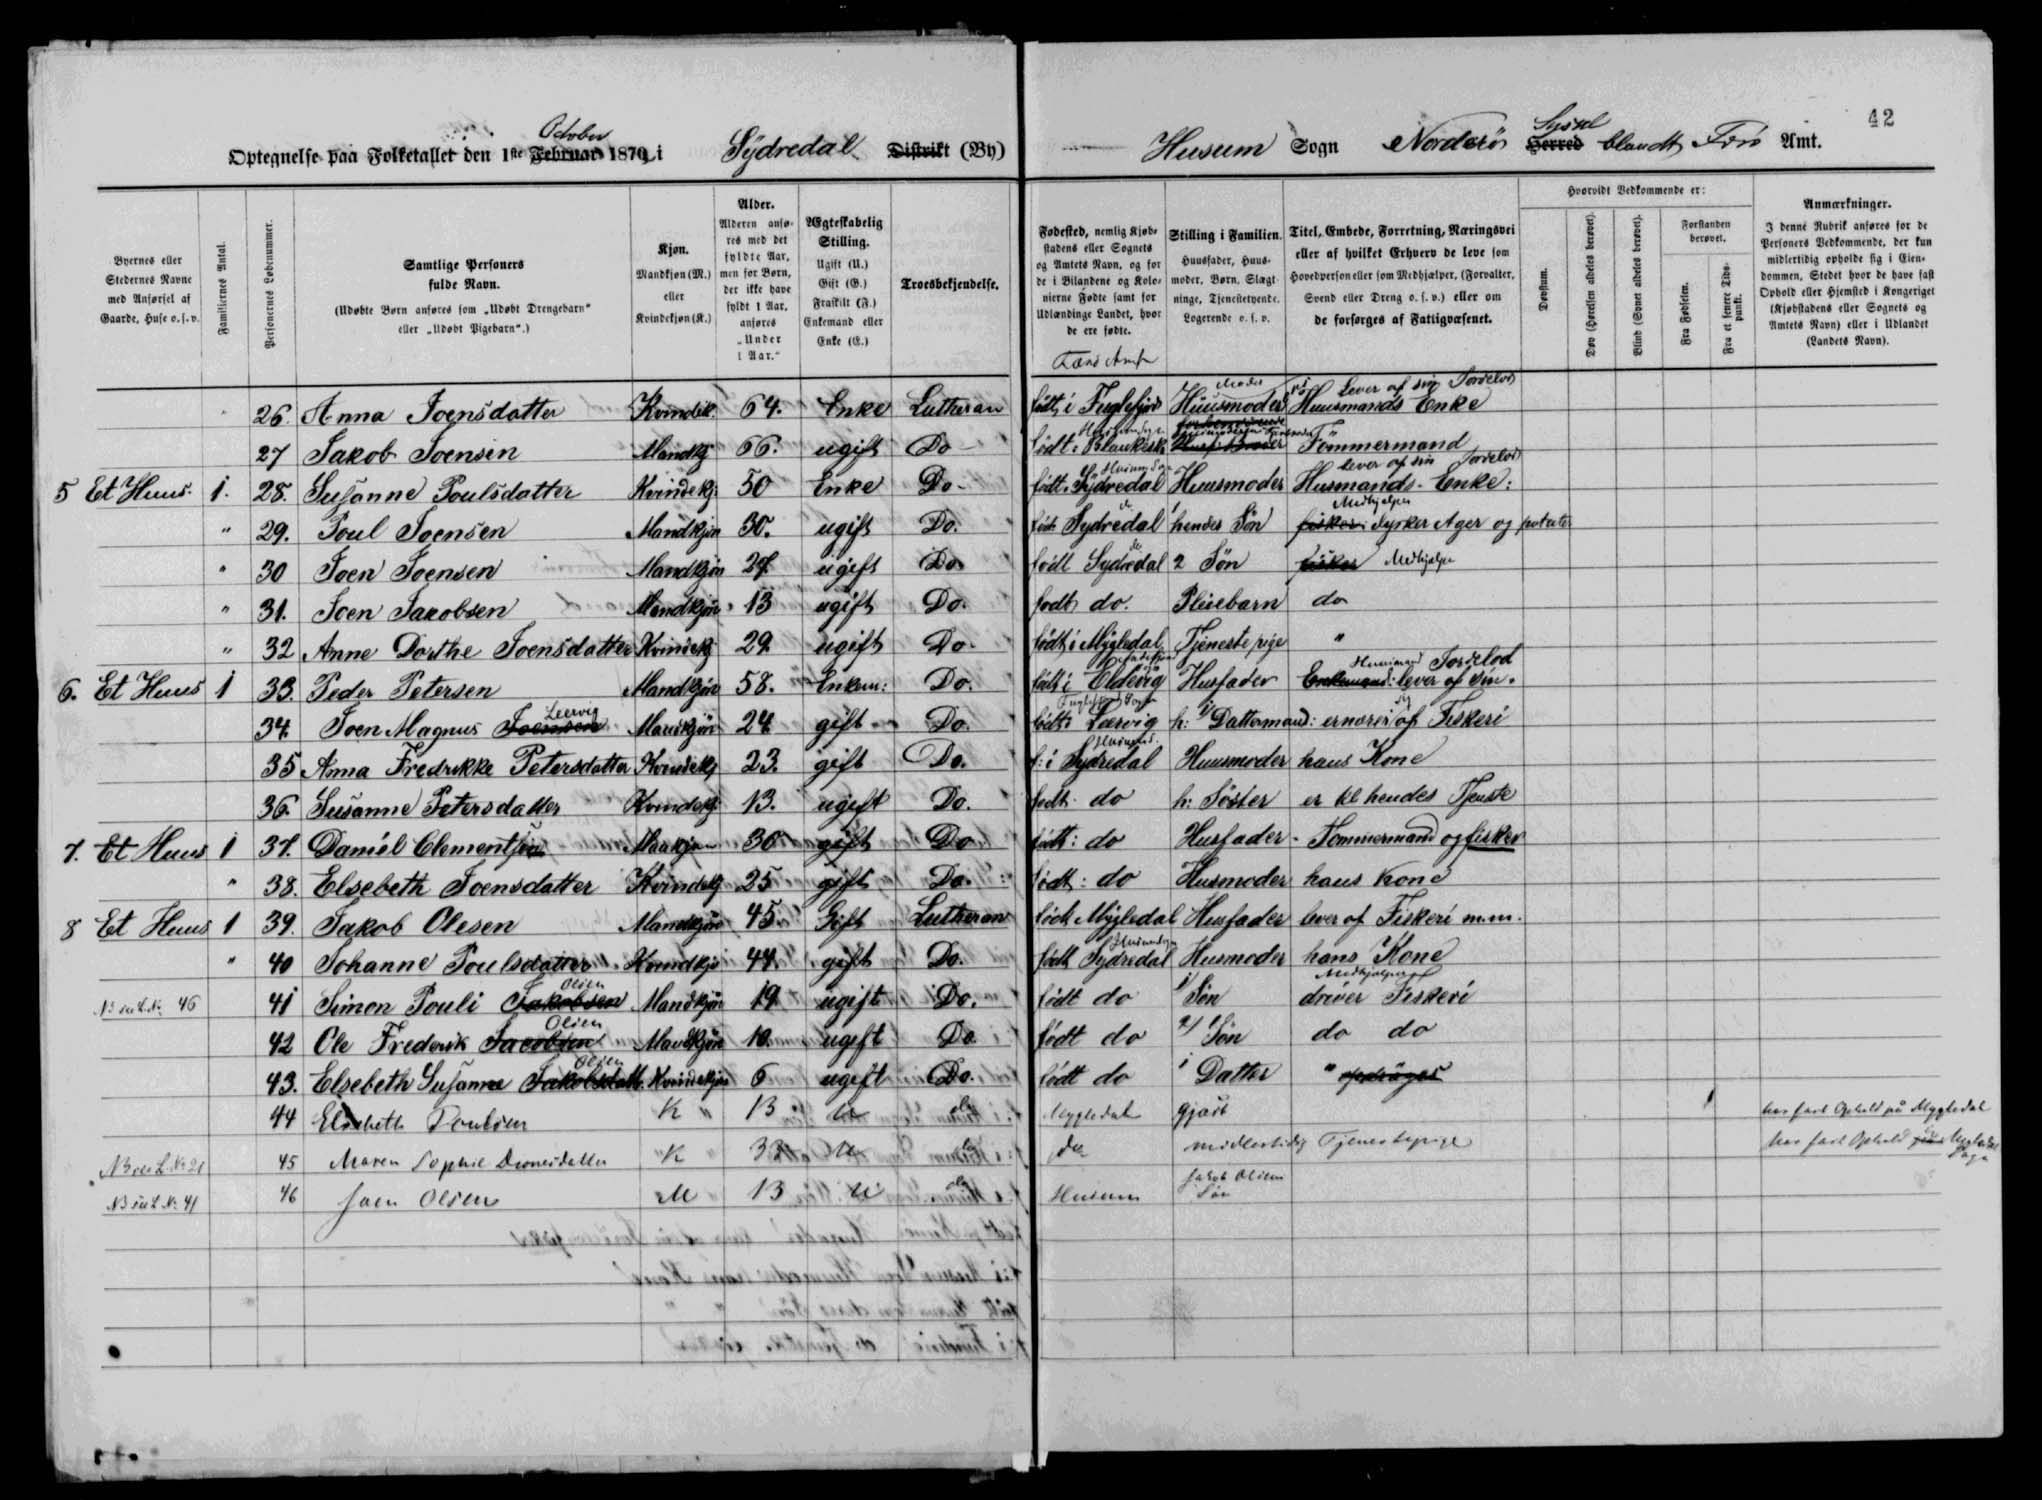 42
October
Syssel
Optegnelse paa Folketallet den 1ste Februar 1870, i Sydredal Distrikt (By)
Husum Sogn Norderö Herred blandt Färö Amt.
Byernes eller Stedernes Navne med Anførsel af Gaarde, Huse o. s. v.
Familiernes Antal.
Personernes Løbenummer.
Samtlige Personers fulde Navn.
(Udøbte Børn anføres som „Udøbt Drengebarn" eller „Udøbt Pigebarn".)
Kjøn.
Mandkjøn (M.) eller Kvindekjøn (K.)
Alder.
Alderen anføres med det fyldte Aar, men for Børn, der ikke have fyldt 1 Aar, anføres „Under 1 Aar."
Ægteskabelig Stilling.
Ugift (U.) Gift (G.) Fraskilt (F.) Enkemand eller Enke (E.)
Troesbekjendelse.
Fødested, nemlig Kjøbstadens eller Sognets og Amtets Navn, og for de i Bilandene og Kolonierne Fødte samt for Udlændinge Landet, hvor de ere fødte.
Stilling i Familien.
Huusfader, Huusmoder, Børn, Slægtninge, Tjenestetyende, Logerende o. s. v.
Titel, Embede, Forretning, Næringsvei eller af hvilket Erhverv de leve som Hovedperson eller som Medhjælper, (Forvalter, Svend eller Dreng o. s. v.) eller om de forsørges af Fattigvæsenet.
Hvorvidt Vedkommende er:
Døvstum.
Døv (Hørelsen aldeles berøvet).
Blind (Synet aldeles berøvet).
Forstanden berøvet.
Fra Fødselen.
Fra et senere Tidspunkt.
Anmærkninger.
I denne Rubrik anføres for de Personers Vedkommende, der kun midlertidig opholde sig i Eiendommen, Stedet hvor de have fast Ophold eller Hjemsted i Kongeriget (Kjøbstadens eller Sognets og Amtets Navn) eller i Udlandet (Landets Navn).
Færö Amt
Moder Lever af sin Jordlod
26. Anna Joensdatter Kvindek. 64. Enke Lutheran födt i Fuglefjord Huusmoder Huusmands Enke
Husumsogn
27 Jakob Joensen Mandkj 66. ugift Do födt: Blankesk. Tömmermand
Husum Sogn lever af sin Jordlod
5 Et Huus. 1. 28. Susanne Poulsdatter Kvindekj. 50 Enke Do födt. Sydredal Huusmoder Husmands-Enke:
do Medhjelper
" 29. Poul Joensen Mandkjön 30. ugift Do. födt Sydredal hendes Sön fisker. dyrker Ager og
do
" 30 Joen Joensen Mandkjön 27. ugift Do födt Sydredal 2 Sön fisker Medhjelper
" 31. Joen Jakobsen Mandkjön 13 ugift Do. födt do. Pleiebarn do
" 32 Anne Dorthe Joensdatter Kvindekj 29 ugift Do. födt i Mygledal Tjeneste pige "
Huusmand Jordlod
6. Et Huus 1 33. Peder Petersen Mandkjön 58. Enkem: Do. födt i Eldevig Husfader Enkemand: lever af sin.
Leervig Fuglefjord Sogn sig
34. Joen Magnus Joensen Mandkjön 24 gift Do. födt: Lærvig h: Dattermand: ernærer af Fiskeri
Husums.
35 Anna Fredrikke Petersdatter Kvindekj 23. gift Do. f: i Sydredal Huusmoder hans Kone
36. Susanne Petersdatter Kvindekj 13. ugift Do. födt do h: Söster er til hendes Tjenste
7. Et Huus 1 37. Daniel Clementsen Maakjøn 30 gift Do födt: do Husfader - Tömmermand og fisker
" 38. Elsebeth Joensdatter Kvindekj 25 gift Do. födt: do Husmoder hans Kone
8 Et Huus 1 39. Jakob Olesen Mandkjön 45. Gift Lutheran födt Mygledal Husfader lever af Fiskeri m.m.
Husumsogn
" 40 Johanne Poulsdatter Kvindkjö 44. gift Do. födt Sydredal Husmoder hans Kone
Olsen Medhjelper
NB see L.No. 46 41 Simon Pouli Jakobsen Mandkjön 19 ugift Do. födt do 1) Sön driver Fiskeri
Olsen
42 Ole Frederik Jacobsen Mandkjön 10. ugift Do födt do 2) Sön do do
Olsen
43. Elsebeth Susanne Jakobsdatt. Kvindekjön 6 ugift Do. födt do 1 Datter " opdrages
44 Elsebeth Poulsen K " 13 U do Mygledal gjäst har fast Ophold på Mygledal
NB see L No 21 45 Maren Sophie K 33 U do do midlertidig Tjenestepige har fast Ophold
Jakob Olsens
NB see L No 41 46 Joen Olsen M 13 U do Husum Sön